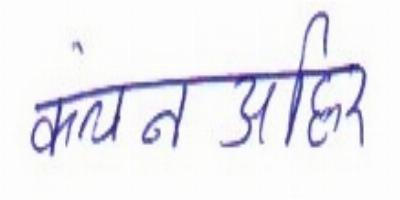 कंचन अहिर